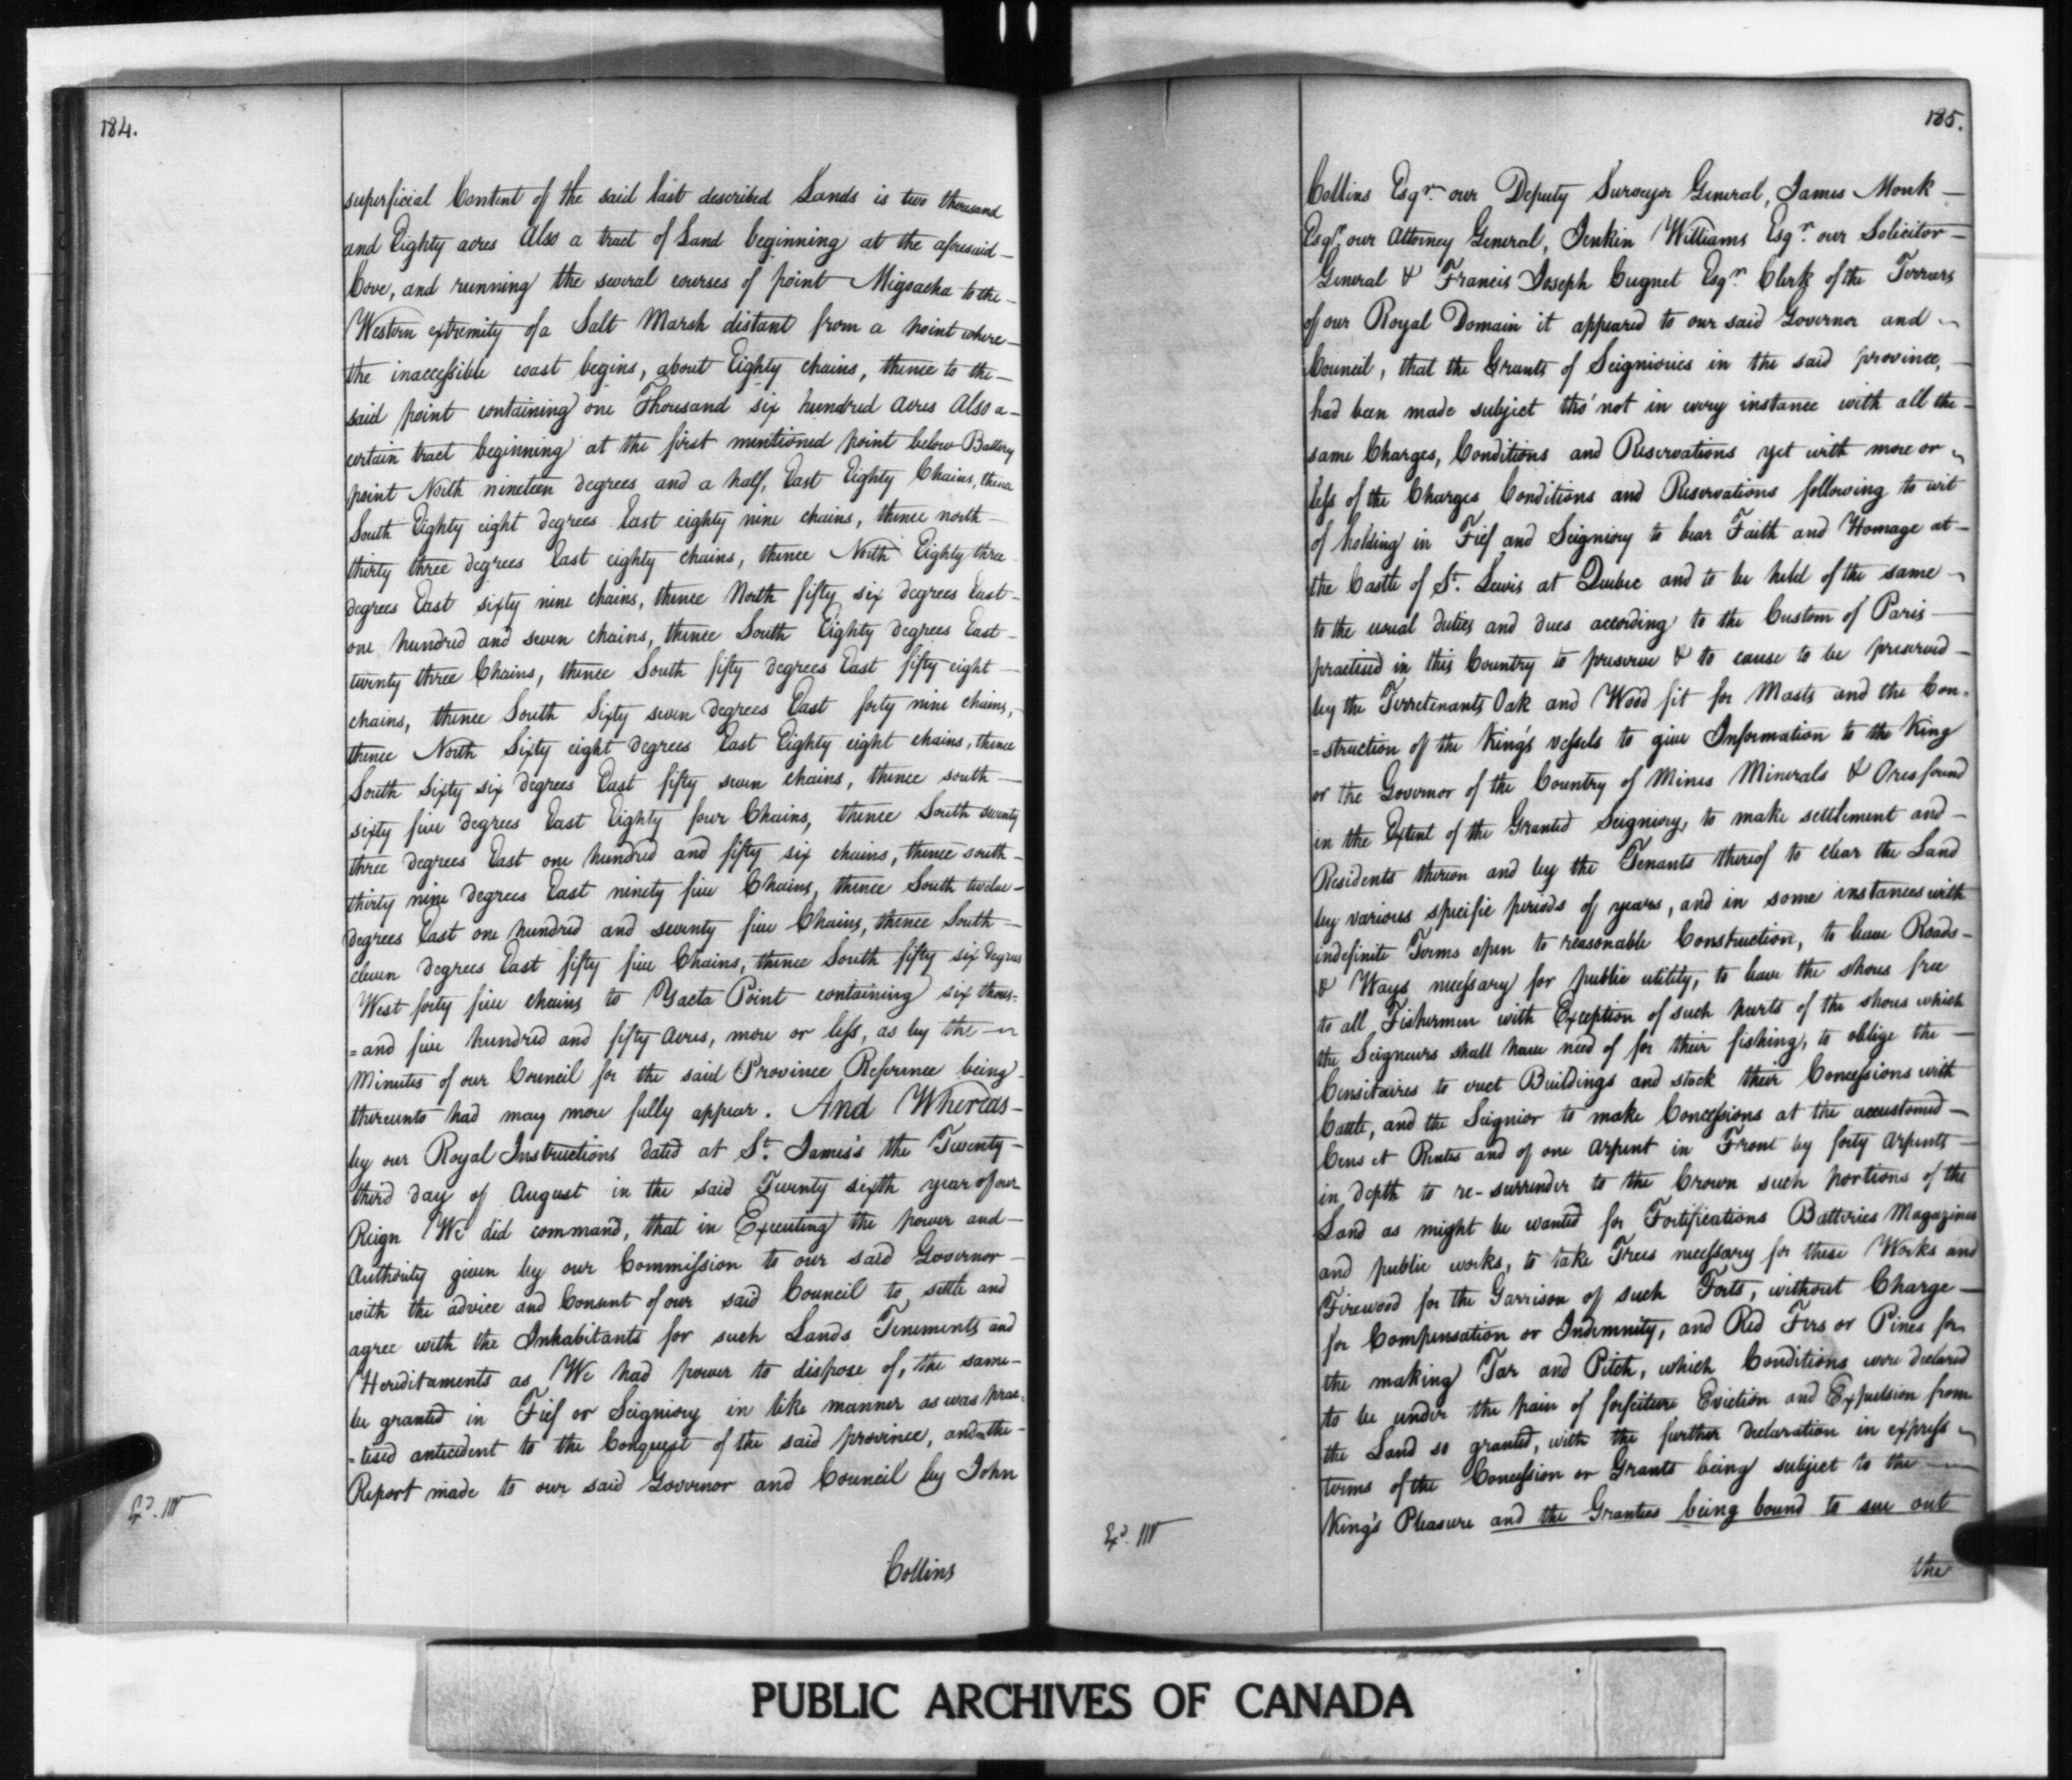 184.
superficial Content of the said last described Lands is two thousand
and Eighty acres Also a tract of Land beginning at the aforesaid -
Cove, and running the several courses of point Migoacha to the -
Western extremity of a Salt Marsh distant from a point where -
the inaccessible coast begins, about Eighty chains, thence to the -
said point containing one Thousand six hundred Acres Also a -
certain tract beginning at the first mentioned point below Battery
point North nineteen degrees and a half, East Eighty Chains, thence
South Eighty eight degrees East eighty nine chains, thence north -
thirty three degrees East eighty chains, thence North Eighty three
degrees East sixty nine chains, thence North fifty six degrees East -
one hundred and seven chains, thence South Eighty degrees East -
twenty three Chains, thence South fifty degrees East fifty eight -
chains, thence South Sixty seven degrees East forty nine chains,
thence North Sixty eight degrees East Eighty eight chains, thence
South Sixty six degrees East fifty seven chains, thence south -
sixty five degrees East Eighty four Chains, thence South seventy
three degrees East one hundred and fifty six chains, thence south -
thirty nine degrees East ninety five Chains, thence South twelve -
degrees East one hundred and seventy five Chains, thence South -
eleven degrees East fifty five Chains, thence South fifty six degrees
West forty five chains to Yacta Point containing six thous=
=and five hundred and fifty Acres, more or less, as by the -
Minutes of our Council for the said Province Reference being -
thereunto had may more fully appear. And Whereas -
by our Royal Instructions dated at St. James's the Twenty -
third day of August in the said Twenty sixth year of our
Reign We did command, that in Executing the power and -
Authority given by our Commission to our said Governor -
with the advice and Consent of our said Council to settle and
agree with the Inhabitants for such Lands Tenements and
Hereditaments as We had power to dispose of, the same -
be granted in Fief or Seigniory in like manner as was prac=
=tised antecedent to the Conquest of the said province, and the -
Report made to our said Governor and Council by John
Collins
Exd. m
185.
Collins Esqr. our Deputy Surveyor General, James Monk -
Esqr. our Attorney General, Jenkin Williams Esqr. our Solicitor -
General & Francis Joseph Cugnet Esqr. Clerk of the Terrars
of our Royal Domain it appeared to our said Governor and -
Council, that the Grants of Seigniories in the said province, -
had been made subject tho' not in every instance with all the -
same Charges, Conditions and Reservations yet with more or -
less of the Charges Conditions and Reservations following to wit
of holding in Fief and Seigniory to bear Faith and Homage at -
the Castle of St. Lewis at Quebec and to be held of the same -
to the usual duties and dues according to the Custom of Paris -
practised in this Country to preserve & to cause to be preserved -
by the Terretenants Oak and Wood fit for Masts and the Con=
=struction of the King's vessels to give Information to the King
or the Governor of the Country of Mines Minerals & Ores found
in the Extent of the Granted Seigniory, to make settlement and -
Residents thereon and by the Tenants thereof to clear the Land
by various specific periods of years, and in some instances with
indefinite Terms open to reasonable Construction, to leave Roads -
& Ways necessary for public utility, to leave the shores free
to all Fishermen with Exception of such parts of the shores which
the Seigneurs shall have need of for their fishing, to oblige the -
Censitaires to erect Buildings and stock their Concessions with
Cattle, and the Seignior to make Concessions at the accustomed -
Cens et Rentes and of one arpent in Front by forty arpents -
in depth to re-surrender to the Crown such portions of the
Land as might be wanted for Fortifications Batteries Magazines
and public works, to take Trees necessary for these Works and
Firewood for the Garrison of such Forts, without Charge -
for Compensation or Indemnity, and Red Firs or Pines for
the making Tar and Pitch, which Conditions were declared
to be under the pain of forfeiture Eviction and Expulsion from
the Land so granted, with the further declaration in express -
terms of the Concession or Grants being subject to the -
King's Pleasure and the Grantees being bound to sue out
the
Exd. m
PUBLIC ARCHIVES OF CANADA